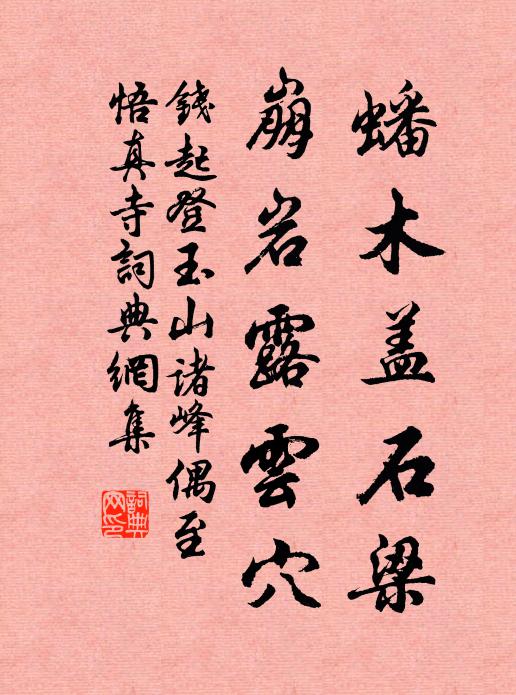 蟠木盖石梁
崩岩露雲穴
錢起登玉山诸峰偶至
悟真寺詞典網集
詞典网印